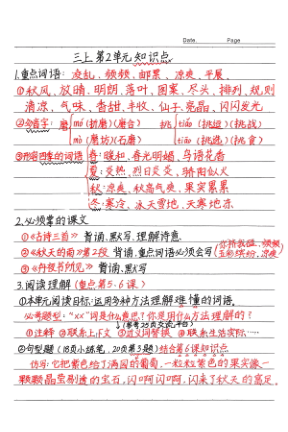 Date. Page
三上第2单元知识点
1.重点词语：凌乱、频频、邮票、凉爽、平展、
①秋风、放晴、明朗、落叶、图案、尽头、排列、规则
清凉、气味、香甜、丰收、仙子、亮晶、闪闪发光
②多音字：磨 mó(折磨)(磨合) 挑 tiāo (挑拉)(挑战)
mò(磨坊)(石磨) tiǎo (挑选)(挑食)
③形容四季的词语 春：暖和、春光明媚、鸟语花香
夏：炎热、烈日炎炎、骄阳似火
秋：凉爽、秋高气爽、果实累累
冬：寒冷、冰天雪地、天寒地冻
2.必须掌的课文
①《古诗三首》背诵、默写、理解诗意.
②《秋天的雨》第2段 背诵、重点词语必须会写
③《丹枫书所见》背诵、默写
3.阅读理解(重点第5.6课)
①本单元阅读目标:运用多种方法理解难懂的词语.
必考题型："xx"词是什么意思？你是用什么方法理解的？
①注释 ②联系上下文 ③近义词替换 ④联系生活实际
②句型题 (18页小练笔、20页第3题)结合第6课知识点
仿写：它把紫色给了满园的葡萄，一粒粒紫色的果实像一
颗颗晶莹剔透的宝石,闪啊闪啊闪,闪来了秋天的富足。